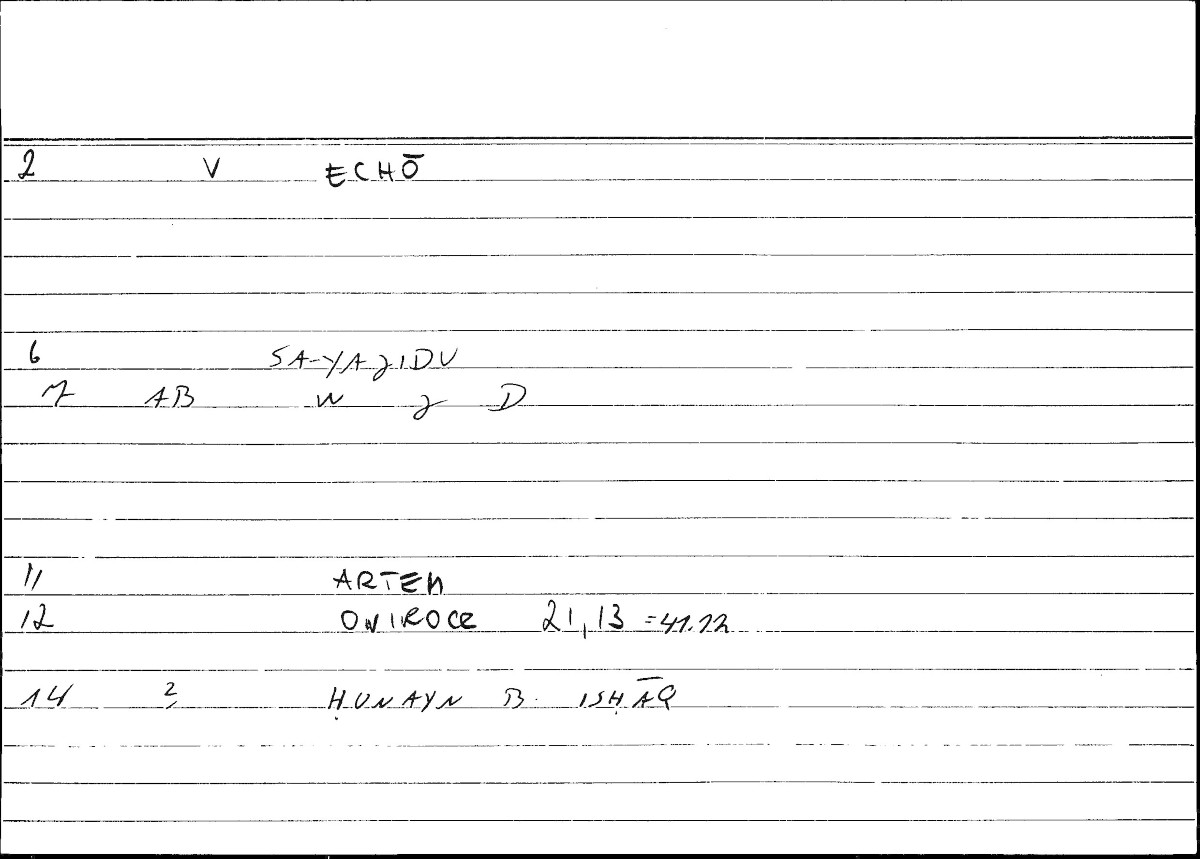 2 V ECHŌ
6 SA-YAJIDU
7 AB W J D
11 ARTEM
12 ONIROCR 21,13 =41.12
14 2 ḤUNAYN B. ISḤĀQ